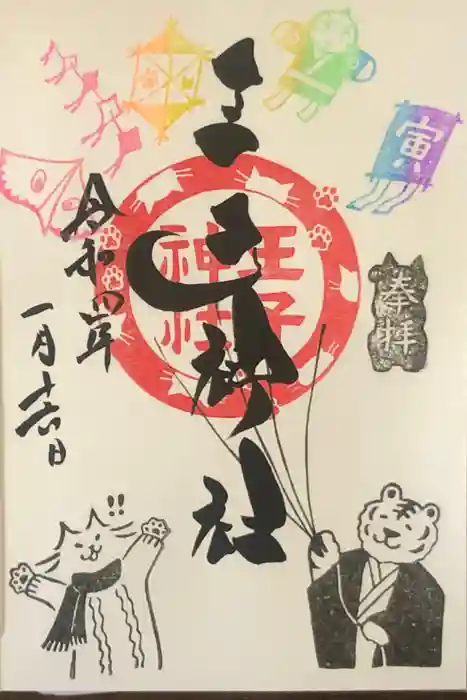 王子神社
令和四年
一月十六日
王子
神社
奉拝
寅
!!